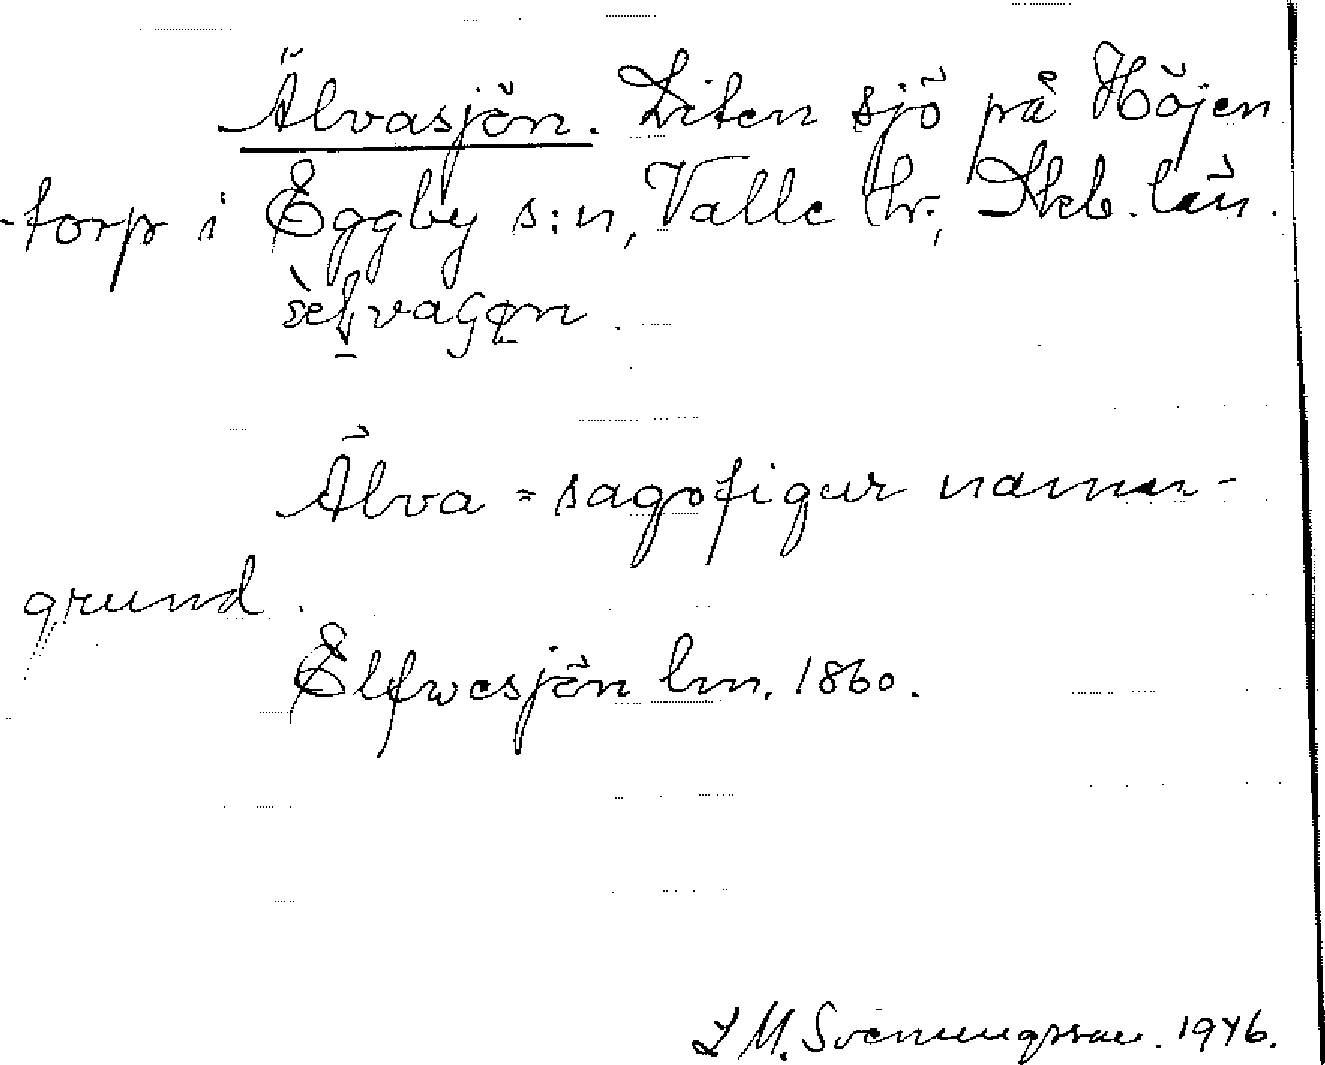 Älvasjön. Liten sjö på Höjen
-torp i Eggby s:n, Valle hr., Skb. län.
Älva = sagofigur namn-
grund.
Elfwesjön lm. 1860.
L M. Svenningsson. 1946.